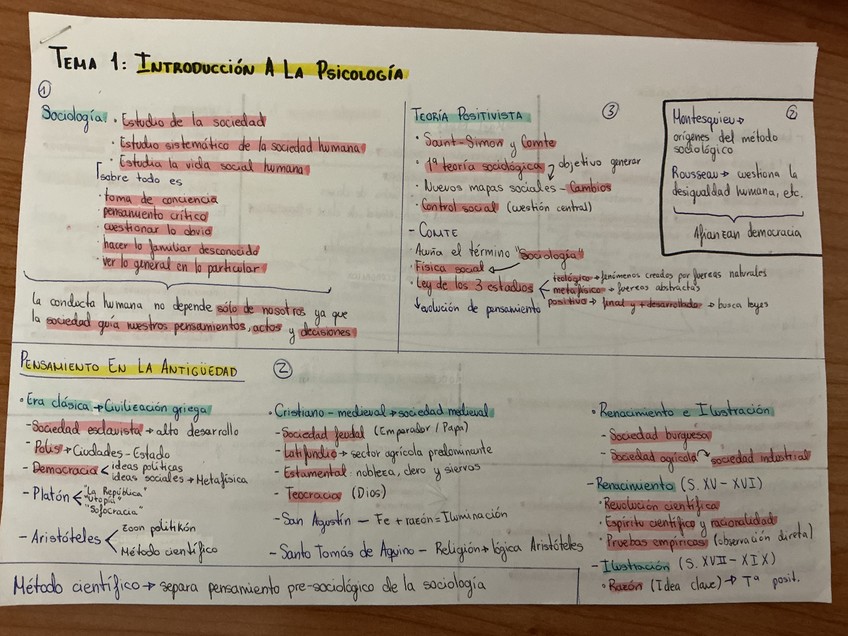 TEMA 1: INTRODUCCIÓN A LA PSICOLOGÍA
①
Sociología • Estudio de la sociedad
• Estudio sistemático de la sociedad humana
• Estudia la vida social humana
sobre todo es
• toma de conciencia
• pensamiento crítico
• cuestionar lo obvio
• hacer lo familiar desconocido
• ver lo general en lo particular
La conducta humana no depende sólo de nosotros ya que
la sociedad guía nuestros pensamientos, actos y decisiones
TEORÍA POSITIVISTA ③
• Saint-Simon y Comte
• 1ª teoría sociológica → objetivo generar
• Nuevos mapas sociales - Cambios
• Control social (cuestión central)
- COMTE
• Acuña el término "Sociología"
• Física social
• Ley de los 3 estadios
teológico → fenómenos creados por fuerzas naturales
metafísico → fuerzas abstractas
positivo → final y + desarrollado → busca leyes
↓ evolución de pensamiento
②
Montesquieu →
orígenes del método
sociológico
Rousseau → cuestiona la
desigualdad humana, etc.
Afianzan democracia
PENSAMIENTO EN LA ANTIGÜEDAD ②
• Era clásica → Civilización griega
- Sociedad esclavista → alto desarrollo
- Polis → Ciudades-Estado
- Democracia < ideas políticas
ideas sociales → Metafísica
- Platón < "La República"
"Utopía"
"Sofocracia"
- Aristóteles < Zoon politikón
Método científico
• Cristiano-medieval → sociedad medieval
- Sociedad feudal (Emperador / Papa)
- Latifundio → sector agrícola predominante
- Estamental: nobleza, clero y siervos
- Teocracia (Dios)
- San Agustín - Fe + razón = Iluminación
- Santo Tomás de Aquino - Religión → lógica Aristóteles
• Renacimiento e Ilustración
- Sociedad burguesa
- Sociedad agrícola → sociedad industrial
- Renacimiento (S. XV - XVI)
• Revolución científica
• Espíritu científico y racionalidad
• Pruebas empíricas (observación directa)
- Ilustración (S. XVII - XIX)
• Razón (Idea clave) → Tª posit.
Método científico → separa pensamiento pre-sociológico de la sociología